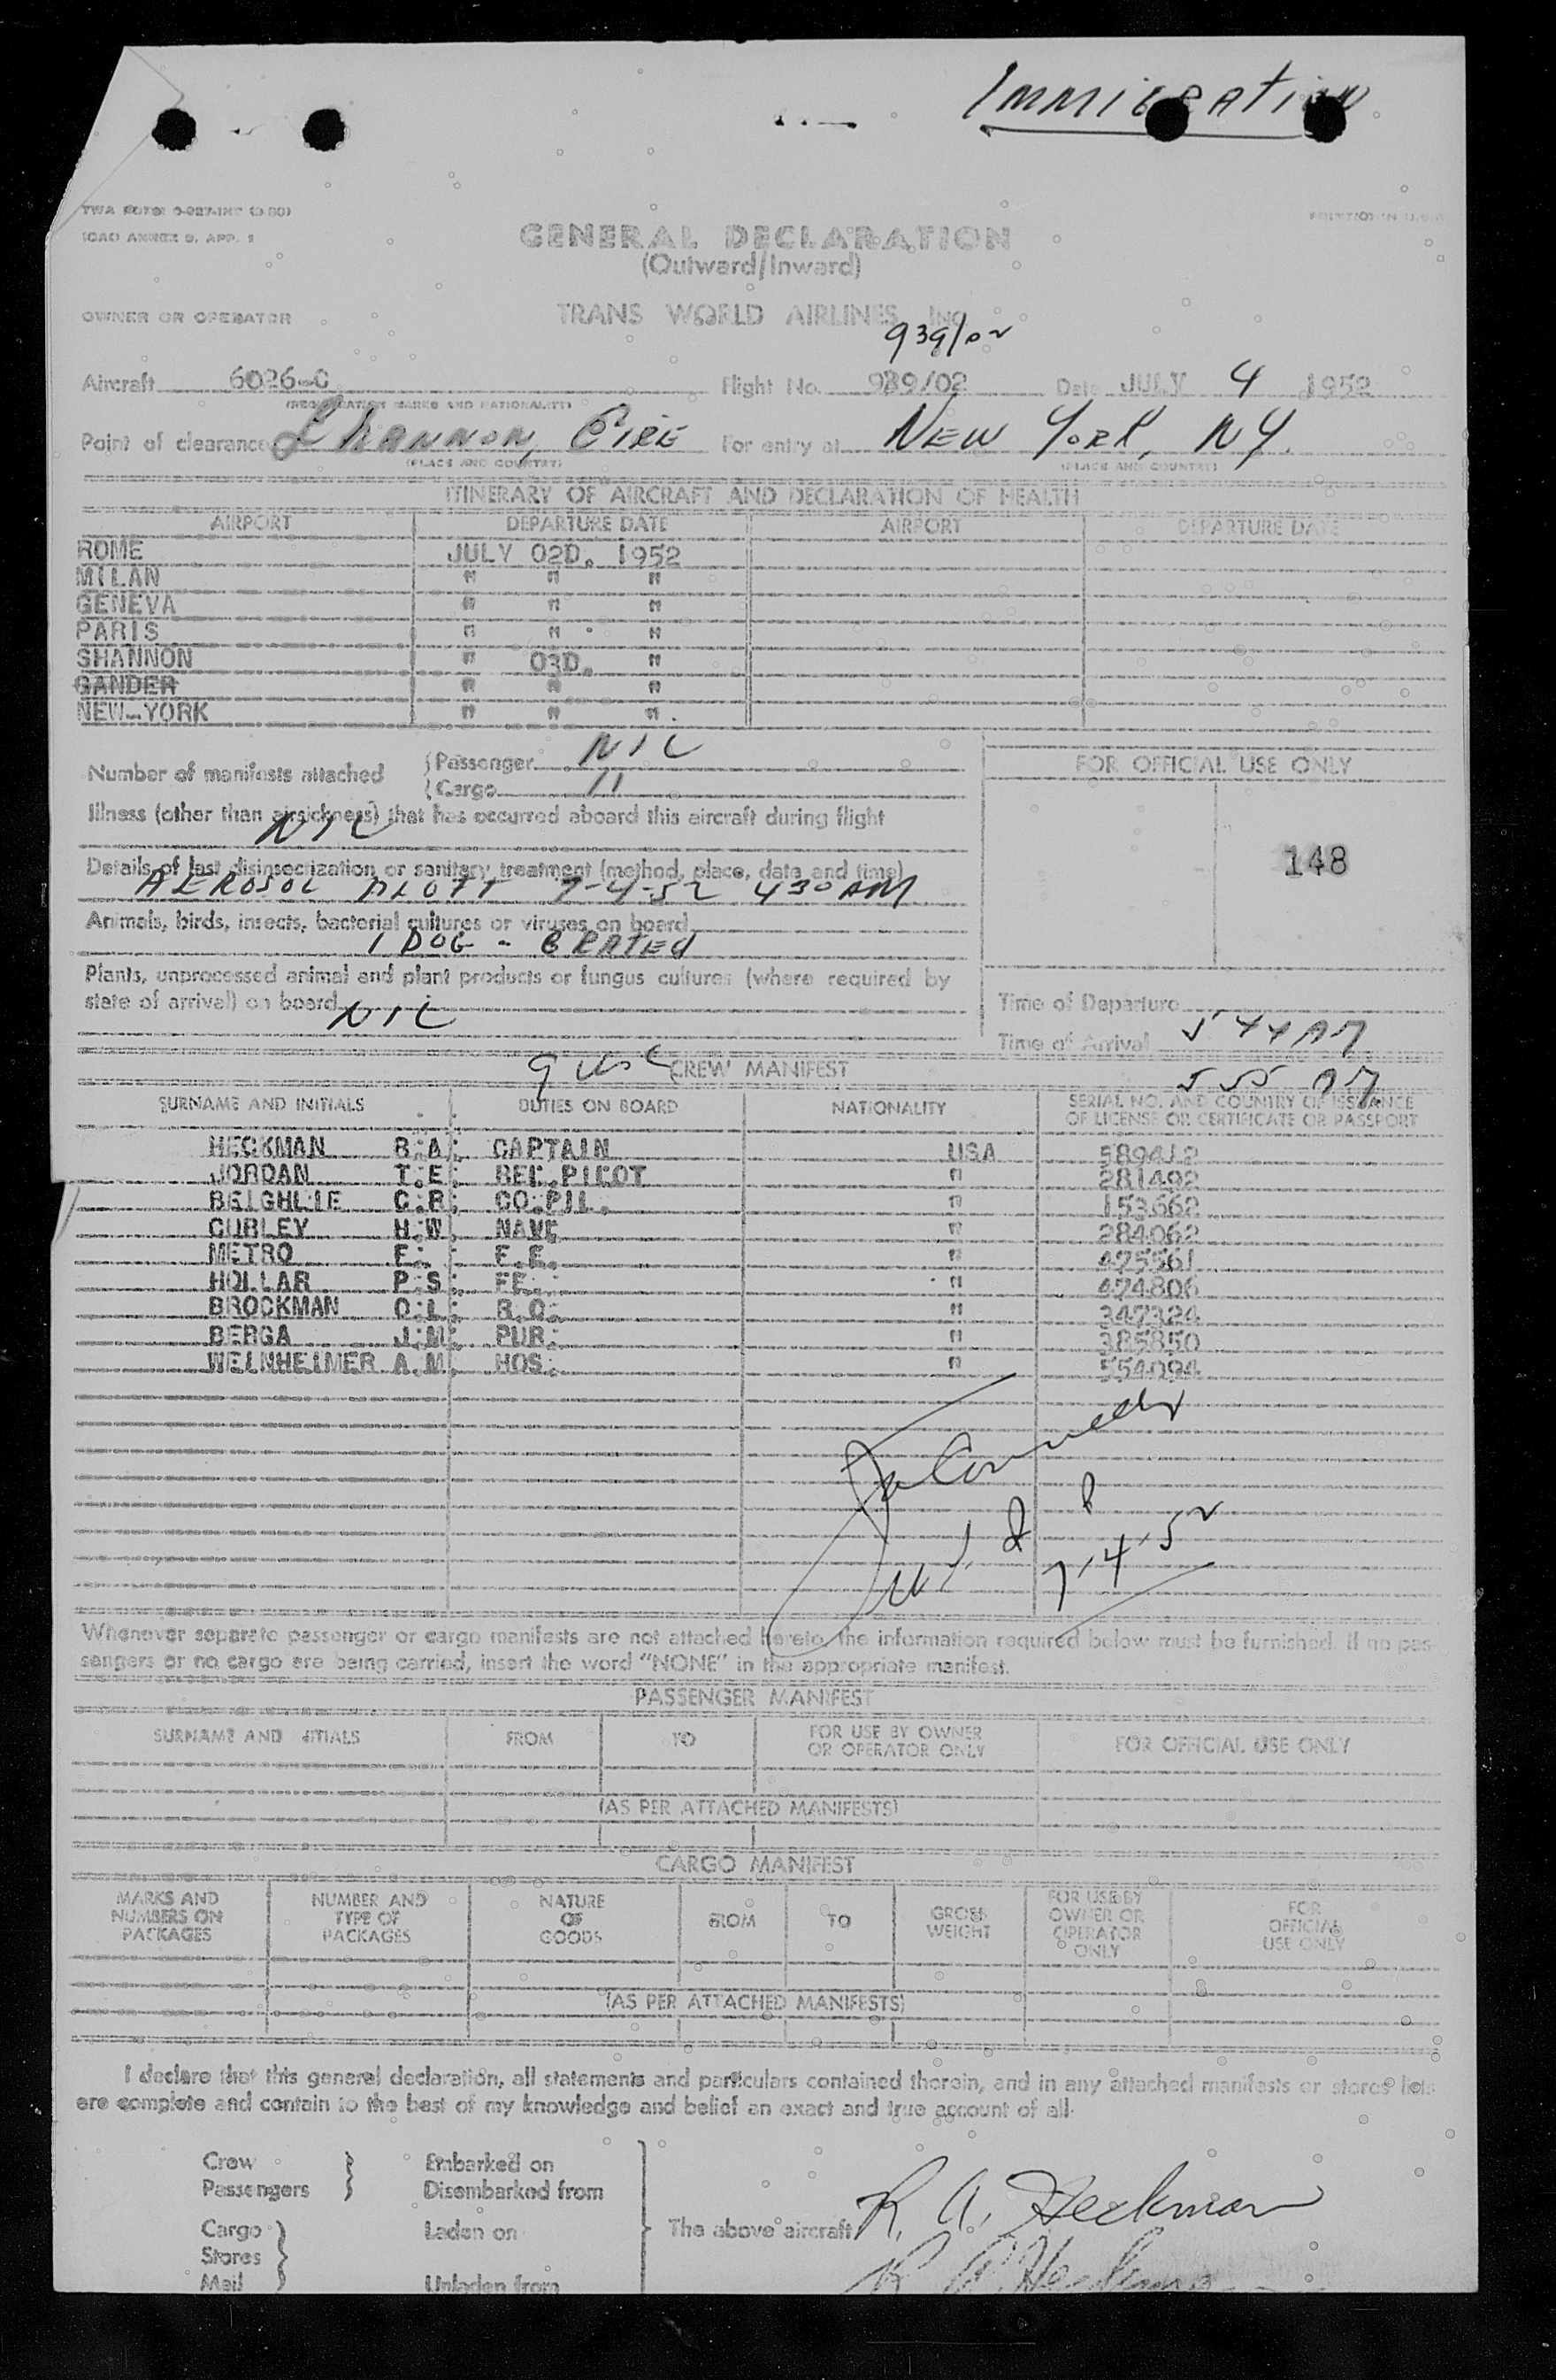 IMMIGRATION
TWA FORM 0-927-INT
ICAO ANNEX 9, APP. 1
PRINTED IN U.S.A.
GENERAL DECLARATION
(Outward/Inward)
OWNER OR OPERATOR TRANS WORLD AIRLINES, INC.
939/02
Aircraft 6026-C Flight No. 939/02 Date JULY 4 1952
(REGISTRATION MARKS AND NATIONALITY)
Point of clearance SHANNON, EIRE For entry at NEW YORK, NY.
(PLACE AND COUNTRY) (PLACE AND COUNTRY)
ITINERARY OF AIRCRAFT AND DECLARATION OF HEALTH
AIRPORT DEPARTURE DATE AIRPORT DEPARTURE DATE
ROME JULY 02D. 1952
MILAN " " "
GENEVA " " "
PARIS " " "
SHANNON " 03D. "
GANDER " " "
NEW-YORK " " "
Number of manifests attached Passenger NIL
Cargo 11
FOR OFFICIAL USE ONLY
Illness (other than airsickness) that has occurred aboard this aircraft during flight
NIL
148
Details of last disinsectization or sanitary treatment (method, place, date and time)
AEROSOL 7-4-52 430 AM
Animals, birds, insects, bacterial cultures or viruses on board
1 DOG - CRATED
Plants, unprocessed animal and plant products or fungus cultures (where required by
state of arrival) on board NIL
Time of Departure
Time of Arrival 544 AM
555 AM
CREW MANIFEST
SURNAME AND INITIALS DUTIES ON BOARD NATIONALITY SERIAL NO. AND COUNTRY OF ISSUANCE
OF LICENSE OR CERTIFICATE OR PASSPORT
HECKMAN R.A. CAPTAIN USA 589412
JORDAN T.E. REL.PILOT " 281492
BEIGHLIE C.R. CO.PIL. " 153662
CURLEY H.W. NAV. " 284062
METRO F. F.E. " 425561
HOLLAR P.S. FE. " 474806
BROCKMAN O.L. R.O. " 347324
BERGA J.M. PUR. " 385850
WEINHEIMER A.M. HOS. " 554094
7/4/52
Whenever separate passenger or cargo manifests are not attached hereto, the information required below must be furnished. If no pas-
sengers or no cargo are being carried, insert the word "NONE" in the appropriate manifest.
PASSENGER MANIFEST
SURNAME AND INITIALS FROM TO FOR USE BY OWNER OR OPERATOR ONLY FOR OFFICIAL USE ONLY
(AS PER ATTACHED MANIFESTS)
CARGO MANIFEST
MARKS AND NUMBERS ON PACKAGES NUMBER AND TYPE OF PACKAGES NATURE OF GOODS FROM TO GROSS WEIGHT FOR USE BY OWNER OR OPERATOR ONLY FOR OFFICIAL USE ONLY
(AS PER ATTACHED MANIFESTS)
I declare that this general declaration, all statements and particulars contained therein, and in any attached manifests or stores lists
are complete and contain to the best of my knowledge and belief an exact and true account of all
Crew Embarked on
Passengers Disembarked from
Cargo Laden on The above aircraft R. A. Heckman
Stores
Mail Unladen from R A Heckman